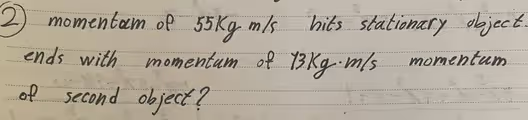 ② momentam of 55Kg m/s hits stationary object.
ends with momentum of 13Kg·m/s momentum
of second object?